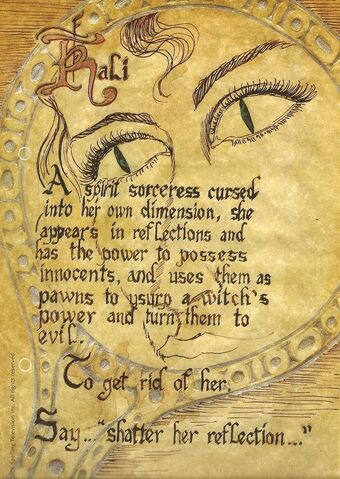 Kali
A spirit sorceress cursed
into her own dimension, she
appears in reflections and
has the power to possess
innocents, and uses them as
pawns to usurp a witch's
power and turn them to
evil.
To get rid of her,
Say..."shatter her reflection..."
Spelling Television, Inc. All rights reserved.